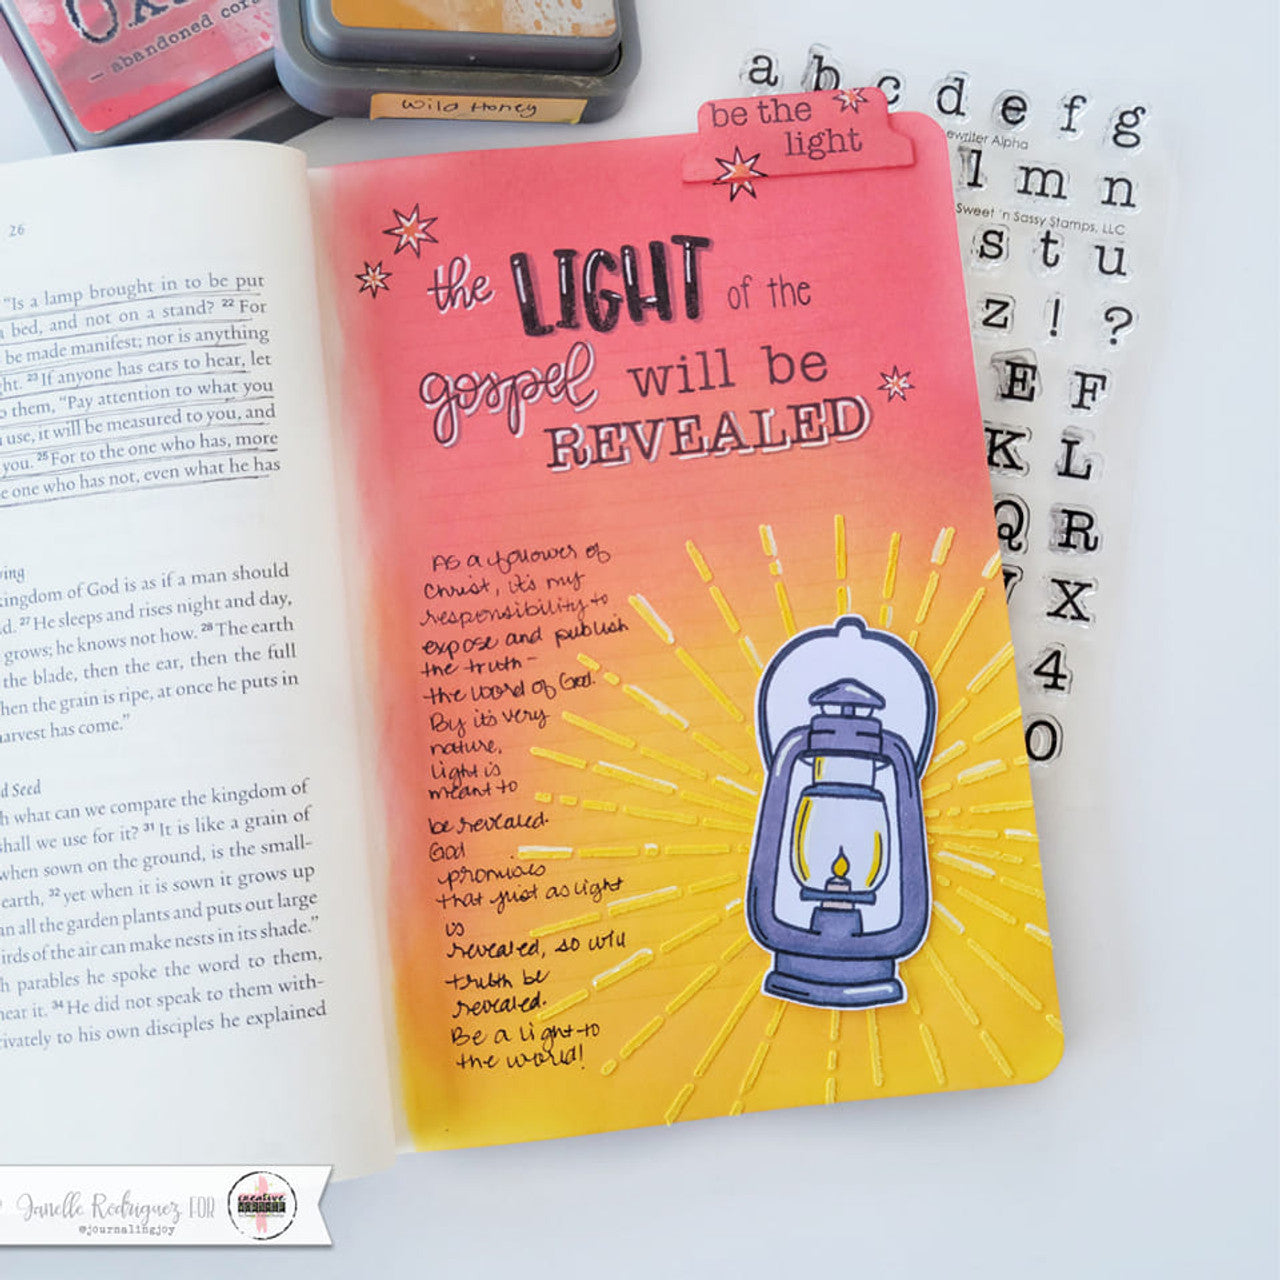 — abandoned coral
Wild Honey
a b c d e f g
ewriter Alpha
l m n
Sweet 'n Sassy Stamps, LLC
s t u
z ! ?
E F
K L
Q R
X
4
0
be the
light
the LIGHT of the
gospel will be
REVEALED
As a follower of
Christ, it's my
responsibility to
expose and publish
the truth –
the word of God.
By it's very
nature,
light is
meant to
be revealed.
God
promises
that just as light
is
revealed, so will
truth be
revealed.
Be a light to
the world!
26
"Is a lamp brought in to be put
a bed, and not on a stand? 22 For
be made manifest; nor is anything
ht. 23 If anyone has ears to hear, let
o them, "Pay attention to what you
u use, it will be measured to you, and
you. 25 For to the one who has, more
e one who has not, even what he has
ving
kingdom of God is as if a man should
d. 27 He sleeps and rises night and day,
grows; he knows not how. 28 The earth
the blade, then the ear, then the full
hen the grain is ripe, at once he puts in
harvest has come."
d Seed
h what can we compare the kingdom of
shall we use for it? 31 It is like a grain of
when sown on the ground, is the small-
earth, 32 yet when it is sown it grows up
an all the garden plants and puts out large
irds of the air can make nests in its shade."
h parables he spoke the word to them,
hear it. 34 He did not speak to them with-
rivately to his own disciples he explained
Janelle Rodriguez FOR
@journalingjoy
creative